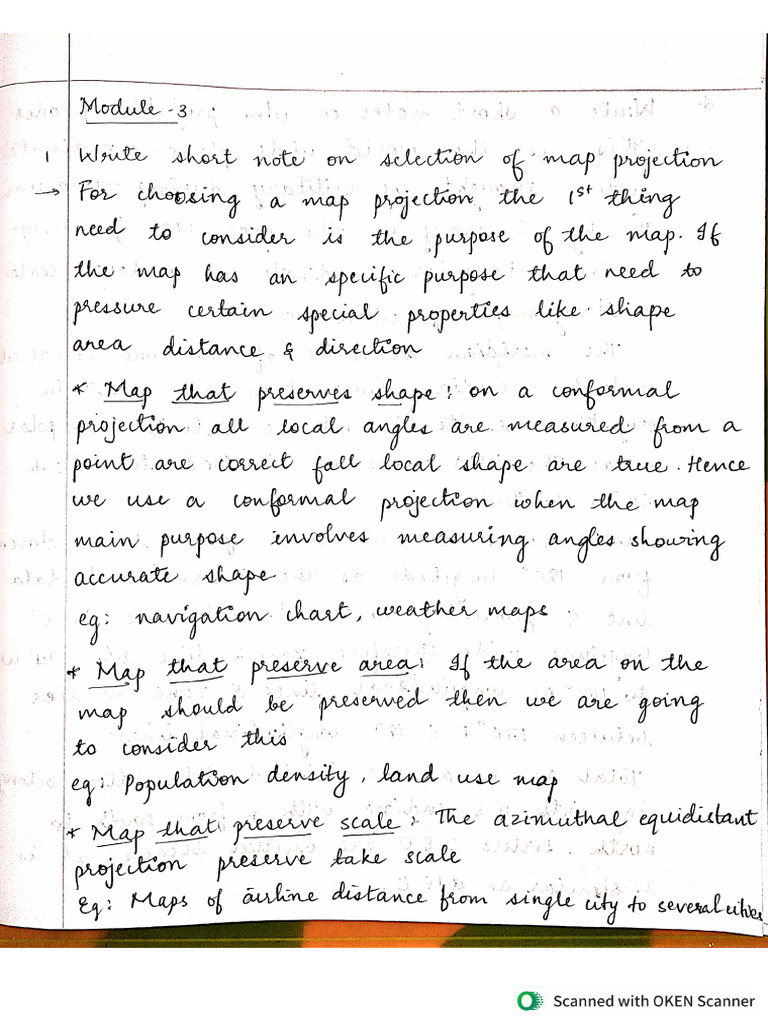 Module - 3
1 Write short note on selection of map projection
→ For choosing a map projection, the 1st thing
need to consider is the purpose of the map. If
the map has an specific purpose that need to
pressure certain special properties like shape
area distance & direction
* Map that preserves shape: on a conformal
projection all local angles are measured from a
point are correct fall local shape are true. Hence
we use a conformal projection when the map
main purpose involves measuring angles showing
accurate shape
eg: navigation chart, weather maps.
* Map that preserve area: If the area on the
map should be preserved then we are going
to consider this
eg: Population density, land use map
* Map that preserve scale: The azimuthal equidistant
projection preserve take scale
Eg: Maps of airline distance from single city to several cities
Scanned with OKEN Scanner